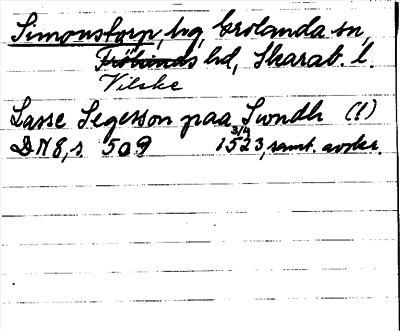 Simonstorp, by, Grolanda sn,
Frökinds hd, Skarab. l.
Vilske
Lasse Segerson paa Swndh (!)
DN 8, s. 509 3/4 1523, samt. avskr.